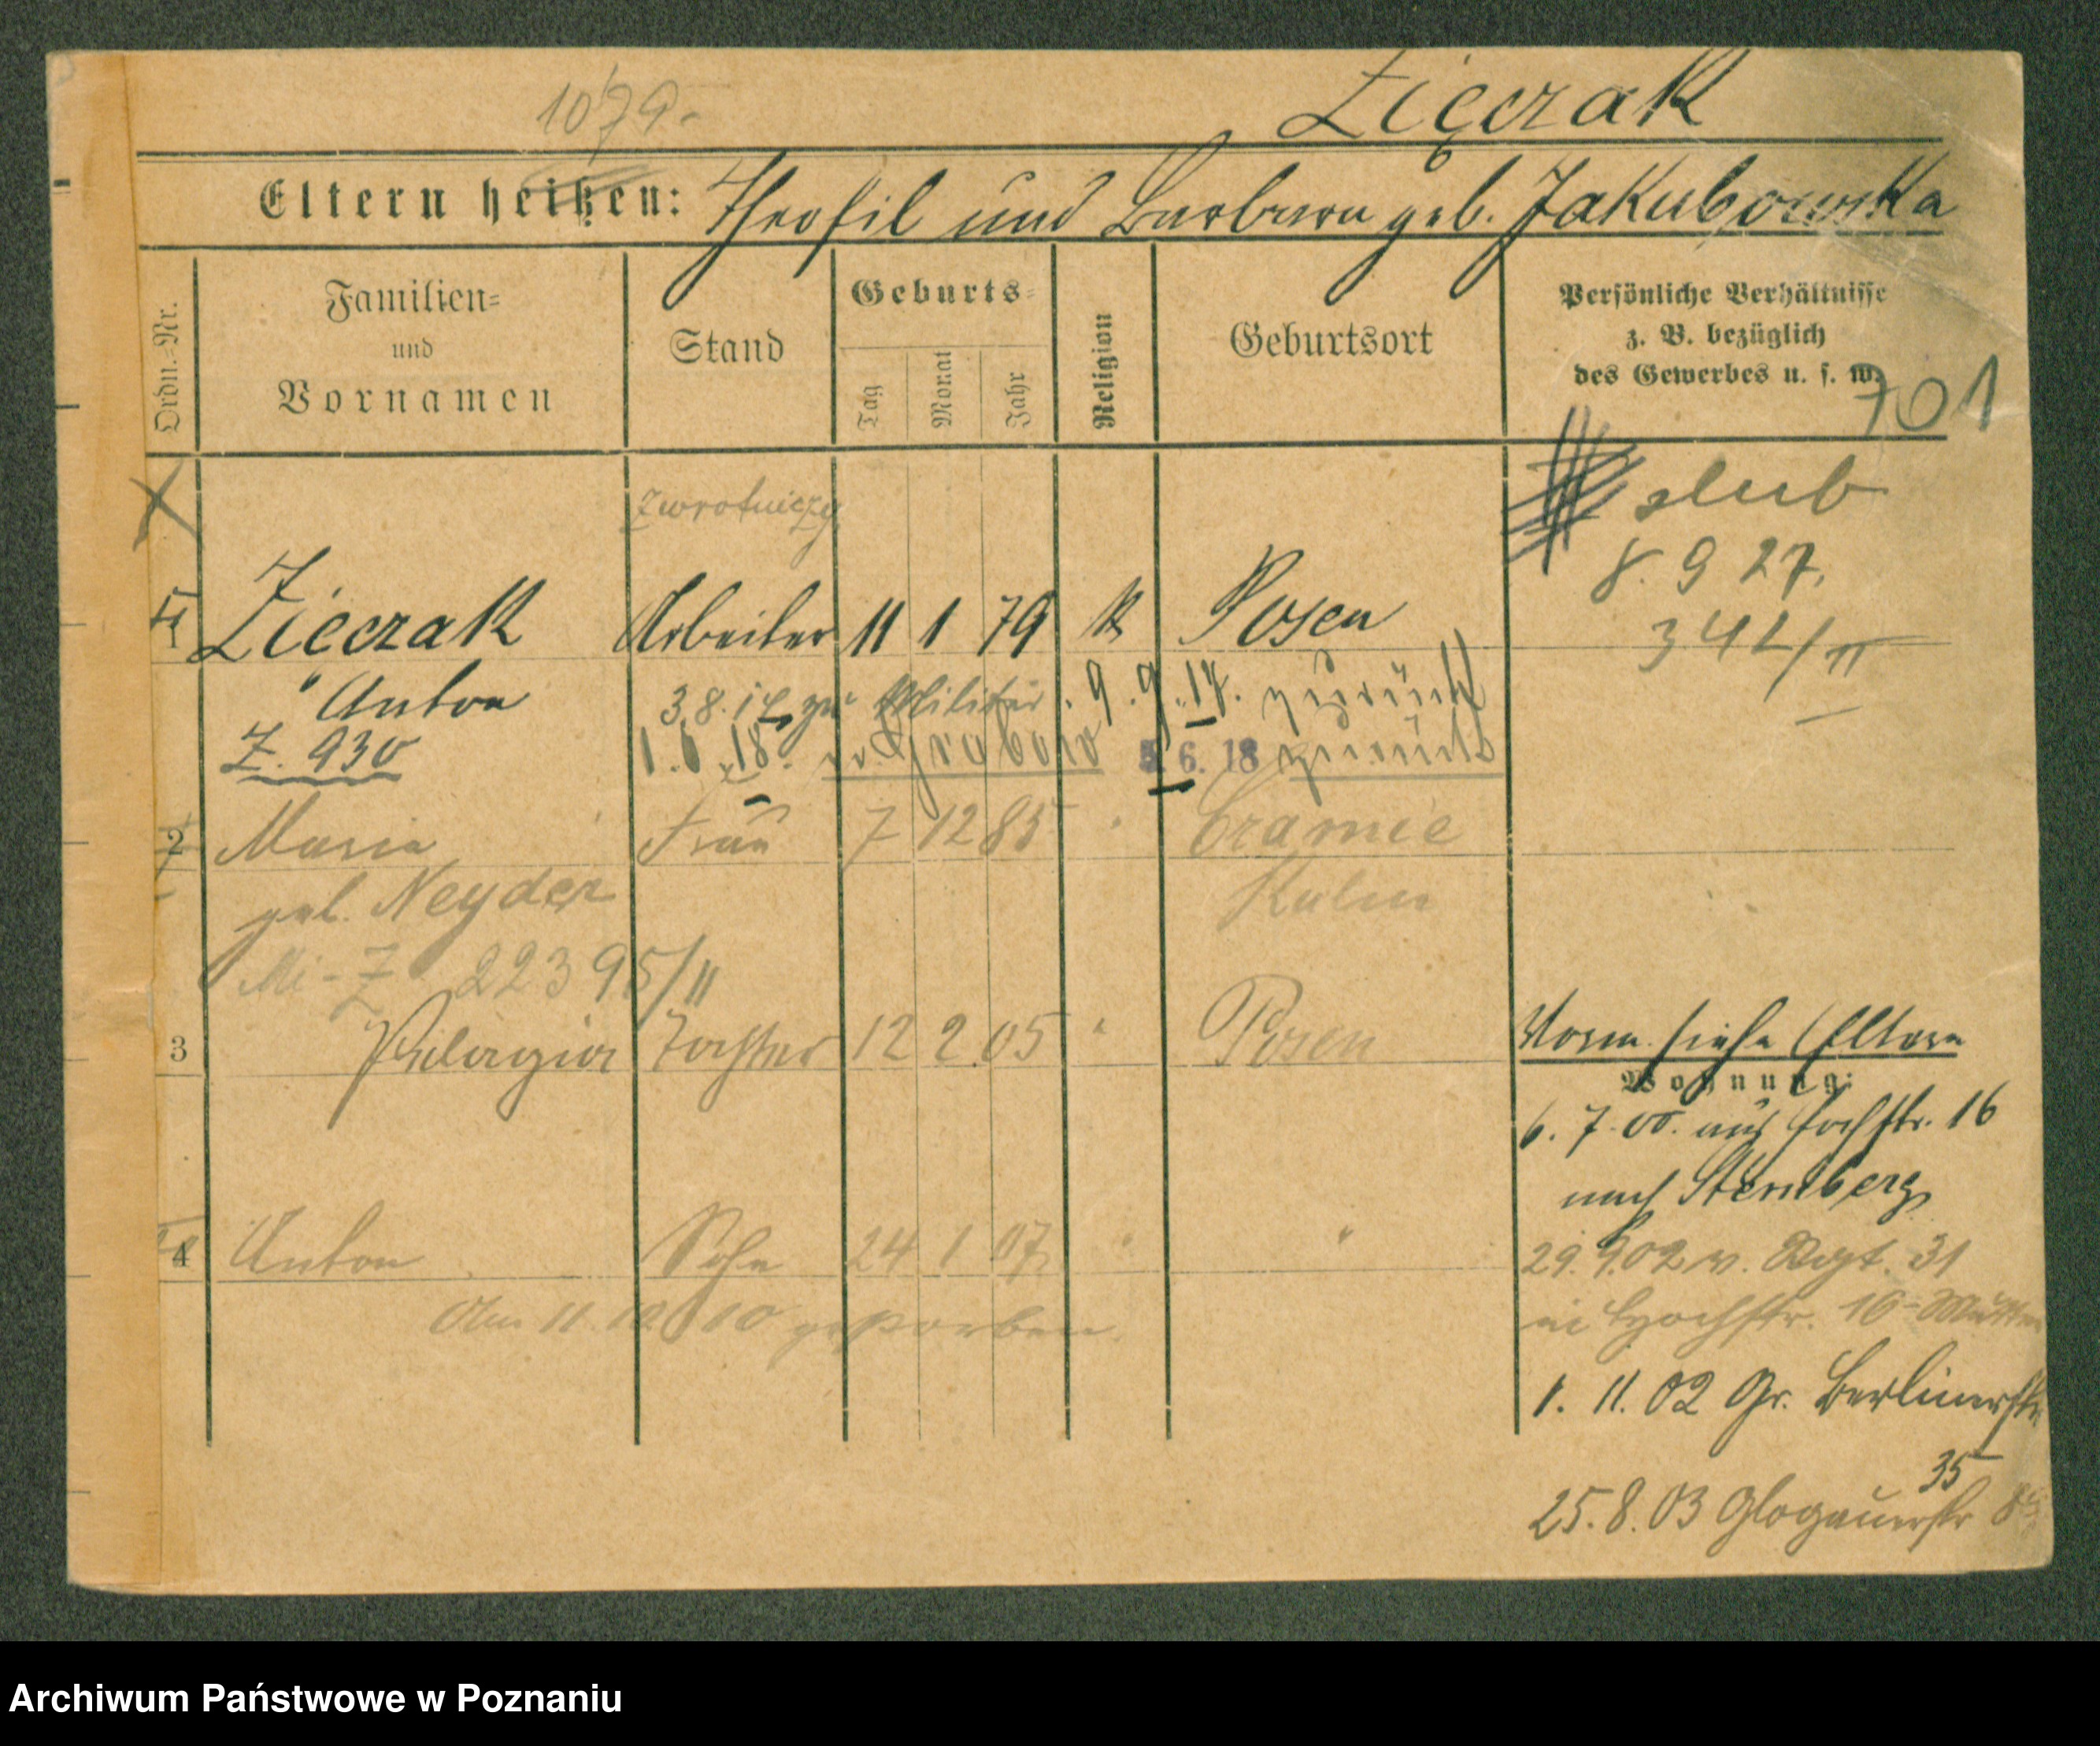 1079.
Zięczak
Eltern heißen: Theofil und Barbara geb. Jakubowska
Ordn.-Nr.
Familien-
und
Vornamen
Stand
Geburts-
Tag
Monat
Jahr
Religion
Geburtsort
Persönliche Verhältnisse
z. B. bezüglich
des Gewerbes u. s. w.
701
Zwrotniczy
slub
8. 9 27.
1 Zięczak Arbeiter 11 1 79 k Posen
342/II
" Anton 3.8.14 zu Militär. 9.9.17. zurück
Z. 930 1.6.18. Grabow 5.6.18 zurück
2 Maria Frau 7 12 85 " Cramie
geb. Neyder Kulm
Mi-Z 22395/II
3 Pelagia Tochter 12 2 05 " Posen
Vorm. siehe Eltern
Wohnung:
6. 7. 00. aus Hochstr. 16
nach Sternberg
4 Anton Sohn 24 1 07 " "
29.9.02 v. Regt. 31
Am 11.12.10 gestorben.
in Hochstr. 16
1. 11. 02 Gr. Berlinerstr.
35
25.8.03 Glogauerstr
Archiwum Państwowe w Poznaniu